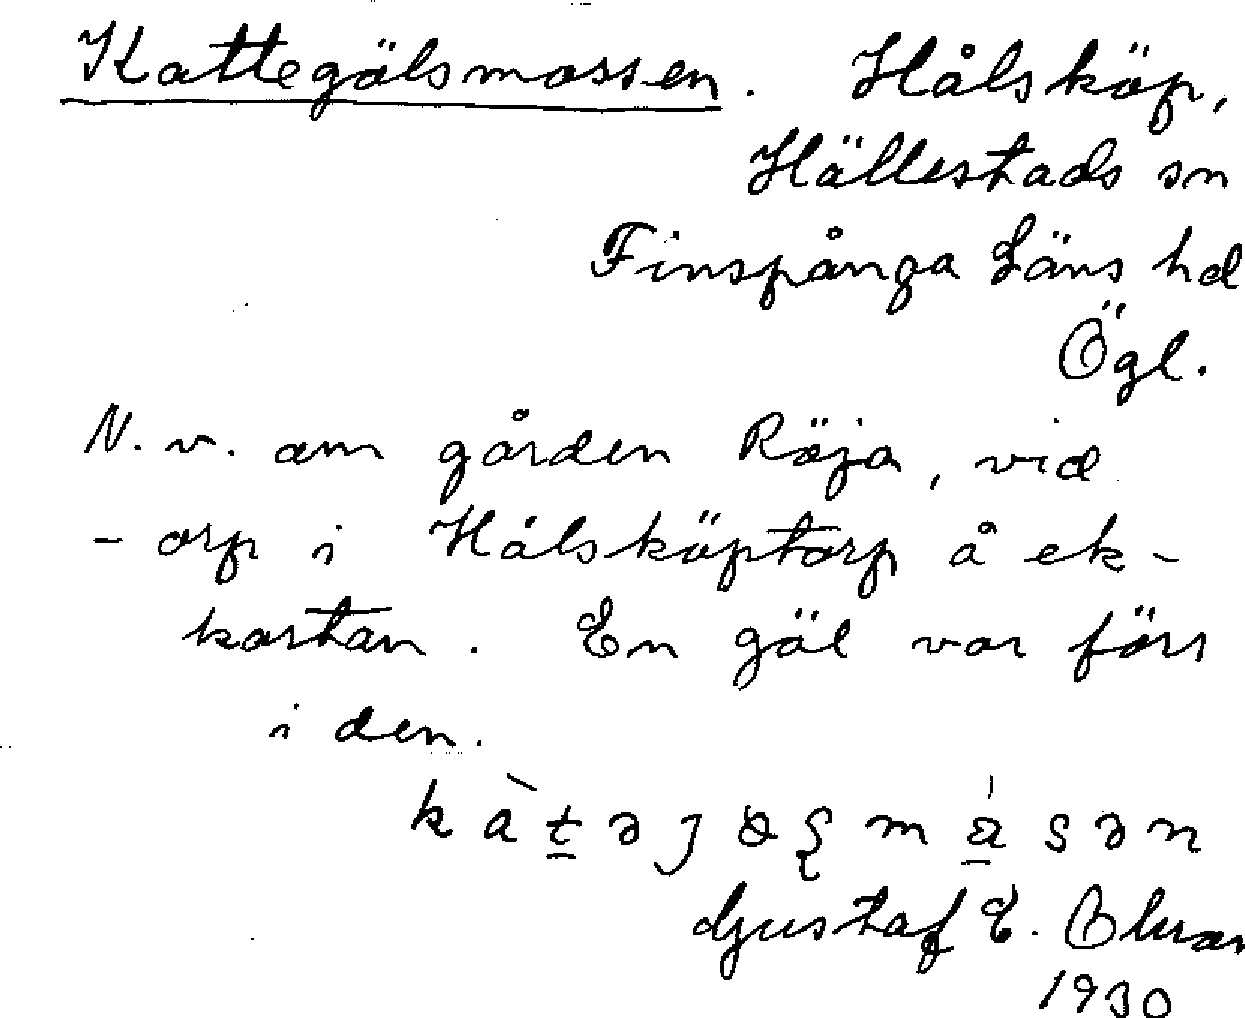 Kattegälsmossen. Hålsköp,
Hällestads sn
Finspånga Läns hd
Ögl.
N. v. om gården Röja, vid
- orp i Hålsköptorp å ek-
kartan. En gäl var förr
i den.
Gustaf E.
1930